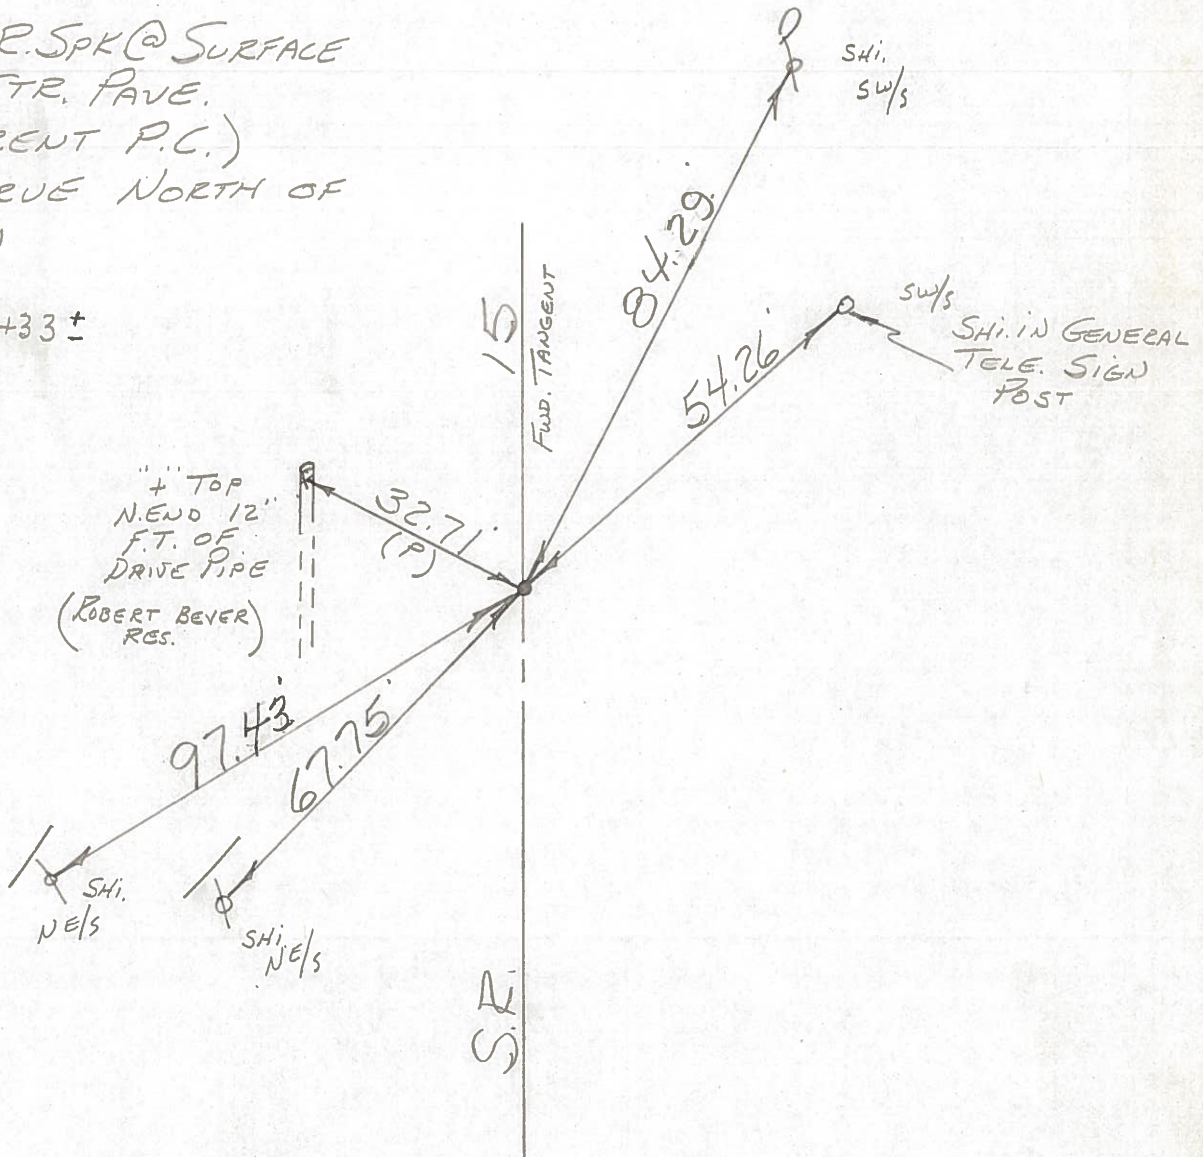 R. SPK @ SURFACE
CTR. PAVE.
RENT P.C.)
RUE NORTH OF
+33 ±
SHI.
SW/S
84.29'
SW/S
SHI. IN GENERAL
TELE. SIGN
POST
54.26'
15
FWD. TANGENT
"+" TOP
N. END 12"
F.T. OF
DRIVE PIPE
(ROBERT BEVER
RES.)
32.71'
(P)
97.43'
67.75'
SHI.
NE/S
SHI.
NE/S
S.R.